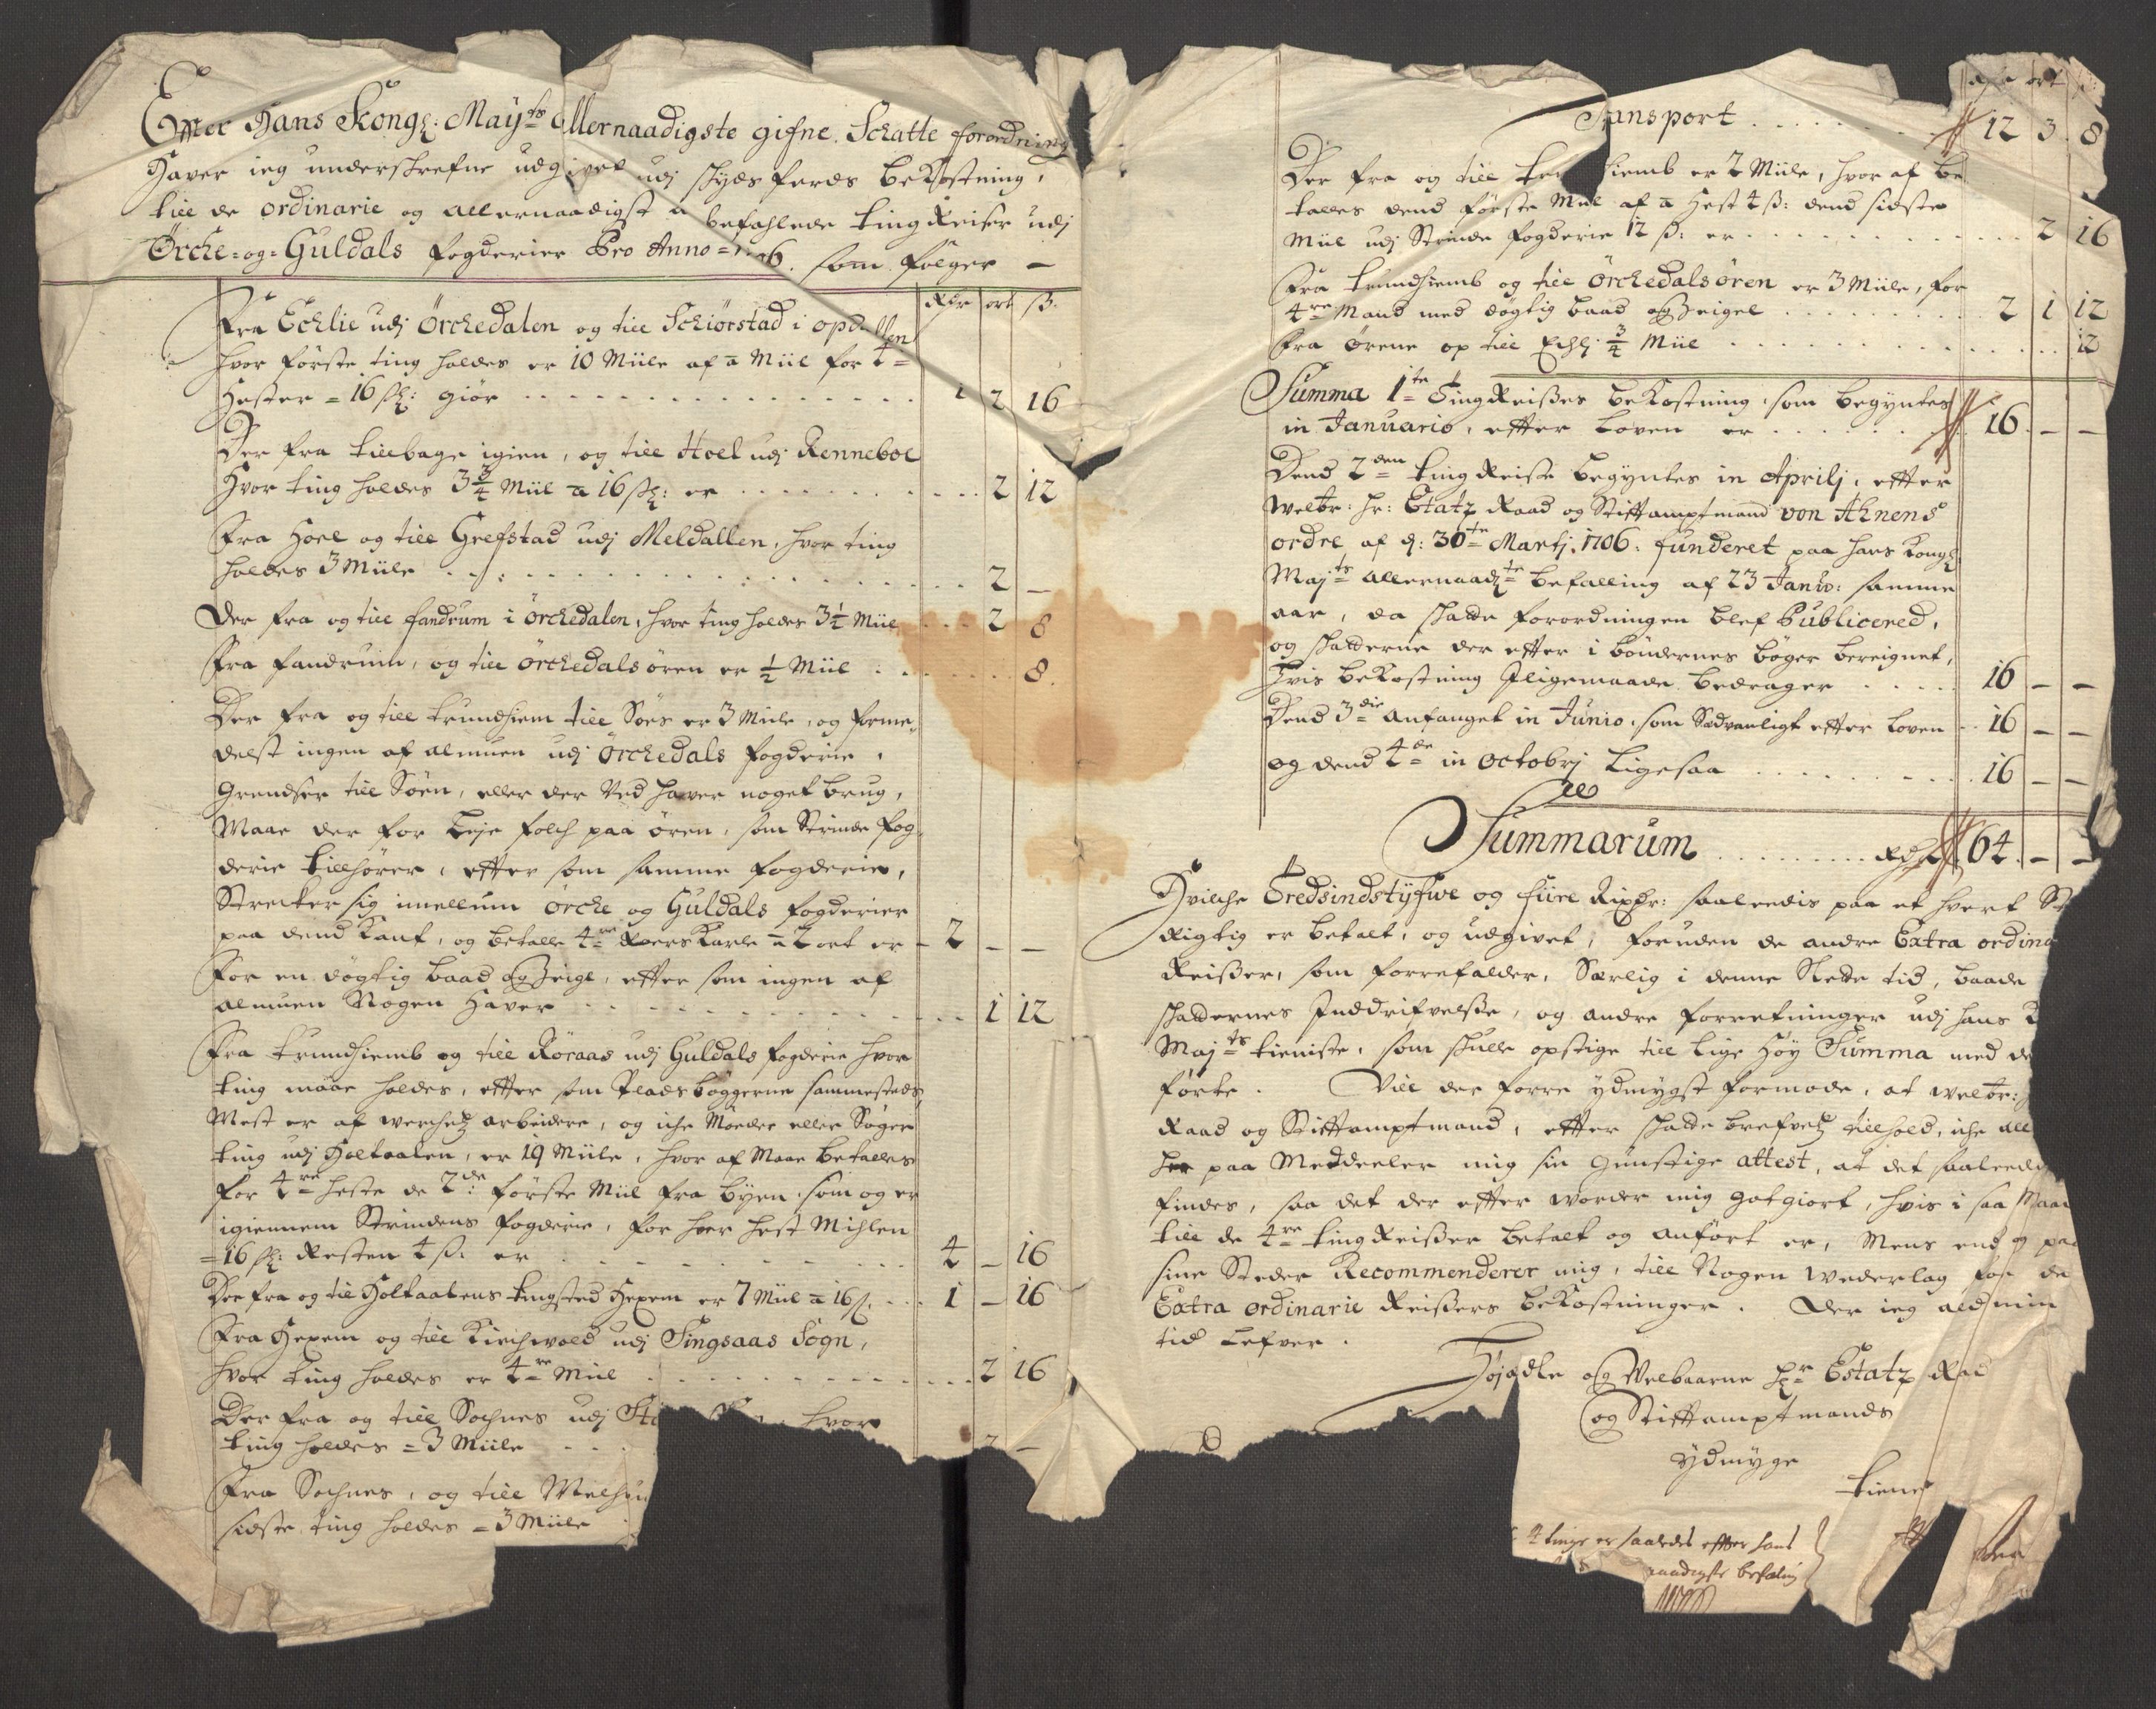 Effter Hans Kongl: Mayts Allernaadigste gifne Schatte forordning
Haver ieg underskrefne udgivet udj skyds ferds bekostning,
till de ordinarie og allernaadigst a befahlede ting Reiser udj
Örche-og-Guldals fogderier Pro Anno 6. som følger -
Rdr ort ß.
Fra Echlie udj Örchedalen og till Schiörstad i opd llen
hvor første ting holdes er 10 Miile af a Miil for 4
Hester = 16 skl: giör 1 2 16
Der fra tilbage igien, og till Hoel udj Renneboe
Hvor ting holdes 3 3/4 Miil a 16 skl: er 2 12
Fra Hoel og till Grefstad udj Meldallen, hvor ting
holdes 3 Miile 2 -
Der fra og till fandrum i Örchedalen, hvor ting holdes 3 1/4 Miil 2 8
Fra fandrum, og till örchedals ören er 1/2 Miil 8.
Der fra og till trundhiem till Söes er 3 Miile, og forme,
delst ingen af almuen udj Örchedals fogderie,
Grendser till Söen, eller der Ved haver noget brug,
Maae der for Leje folch paa ören, som Strinde fog,
derie tillhører, effter som samme fogderie,
Strecker sig imellum örche og Guldals fogderier
paa dend Kant, og betalle 4re Roers Karle a 2 ort er - 2 - -
For en døgtig baad og Seigl, effter som ingen af
almuen Nogen haver 1 12
Fra trundhiemb og till Röraas udj Guldals fogderie hvor
ting maae holdes, effter som Pladsböggerne sammesteds,
Mest er af werchetz arbeidere, og iche Møeder eller Søger
ting udj Holtaalen, er 19 Miile, hvor af Maae betalles
for 4re heste de 2de første Miil fra Byen som og er
igiennem Strindens fogderie, for hver hest Mihlen
= 16 skl: Resten 4 ß: er 4 - 16
Der fra og til Holtaalens tingsted Hexem er 7 Miil a 16 s. 1 - 16
Fra Hexem og till Kirchwold udj Singsaas Sogn,
hvor ting holdes er 4re Miil 2 16
Der fra og till Sochnes udj Stö hvor
ting holdes = 3 Miile 2 -
Fra Sochnes, og till Melhuu
sidste ting holdes = 3 Miile
Rdr ort ß:
Transport 12 3. 8
Der fra og till tru hiemb er 2 Miile, hvor af be
talles dend første Miil af a Hest 4 ß: dend sidste
Miil udj Strinde fogderie 12 ß: er 2 16
Fra trundhiemb og till Örchedalsören er 3 Miile, for
4re Mand med døgtig baad og Seigel 2 1 12
Fra örene op till Echlj 3/4 Miil 12
Summa 1te Ting Reißes bekostning, som begyntes
in Januario, effter Loven er 16 - -
Dend 2den ting Reise begyntes in Aprilj, effter
Welbr: Hr: Etatz Raad og Stiftamptmand von Ahnens
ordre, af d: 30te Martj. 1706. funderet paa hans Kongl
Majts allernaadte befalling af 23 Janv: samme
aar, da skatte forordningen blef Publicered,
og skatterne der effter i böndernes böger bereignet,
hvis bekostning Iligemaade bedrager 16 - -
Dend 3die anfanget in Junio, som Sædvanligt effter Loven 16 - -
og dend 4de in octobrj Ligesaa 16 - -
Summarum Rdr 64. - -
Hvilche Tredsindstyfwe og fiire Rixdr: saaledis paa et hvert St
Rigtig er betalt, og udgivet, foruden de andre Extra ordina
Reißer, som forrefalder, Særlig i denne Slette tid, baade
skatternes Inddrifvelße, og andre forretninger udj hans K
Majts tieniste, som skulle opstige till Lige Høy Summa med de
førte. Vill der forre ydmygst formode, at welbr:
Raad og Stifftamptmand, effter skatte brefvetz tillhold, iche all
her paa Meddeeler mig sin günstige attest, at det saaledis
findes, saa det der effter worder mig gotgiort, hvis i saa Maa
till de 4re ting Reißer betalt og anført er, Mens end og paa
sine Steder Recommenderer mig, till Nogen wederlag for de
Extra ordinarie Reißers bekostninger. Der ieg ald min
tid Lefver.
Højædle og Welbaarne Hr Estatz Rad
og Stifftamptmands
ydmyge
tiener
4 tinge er saaledes effter hans
naadigste befaling